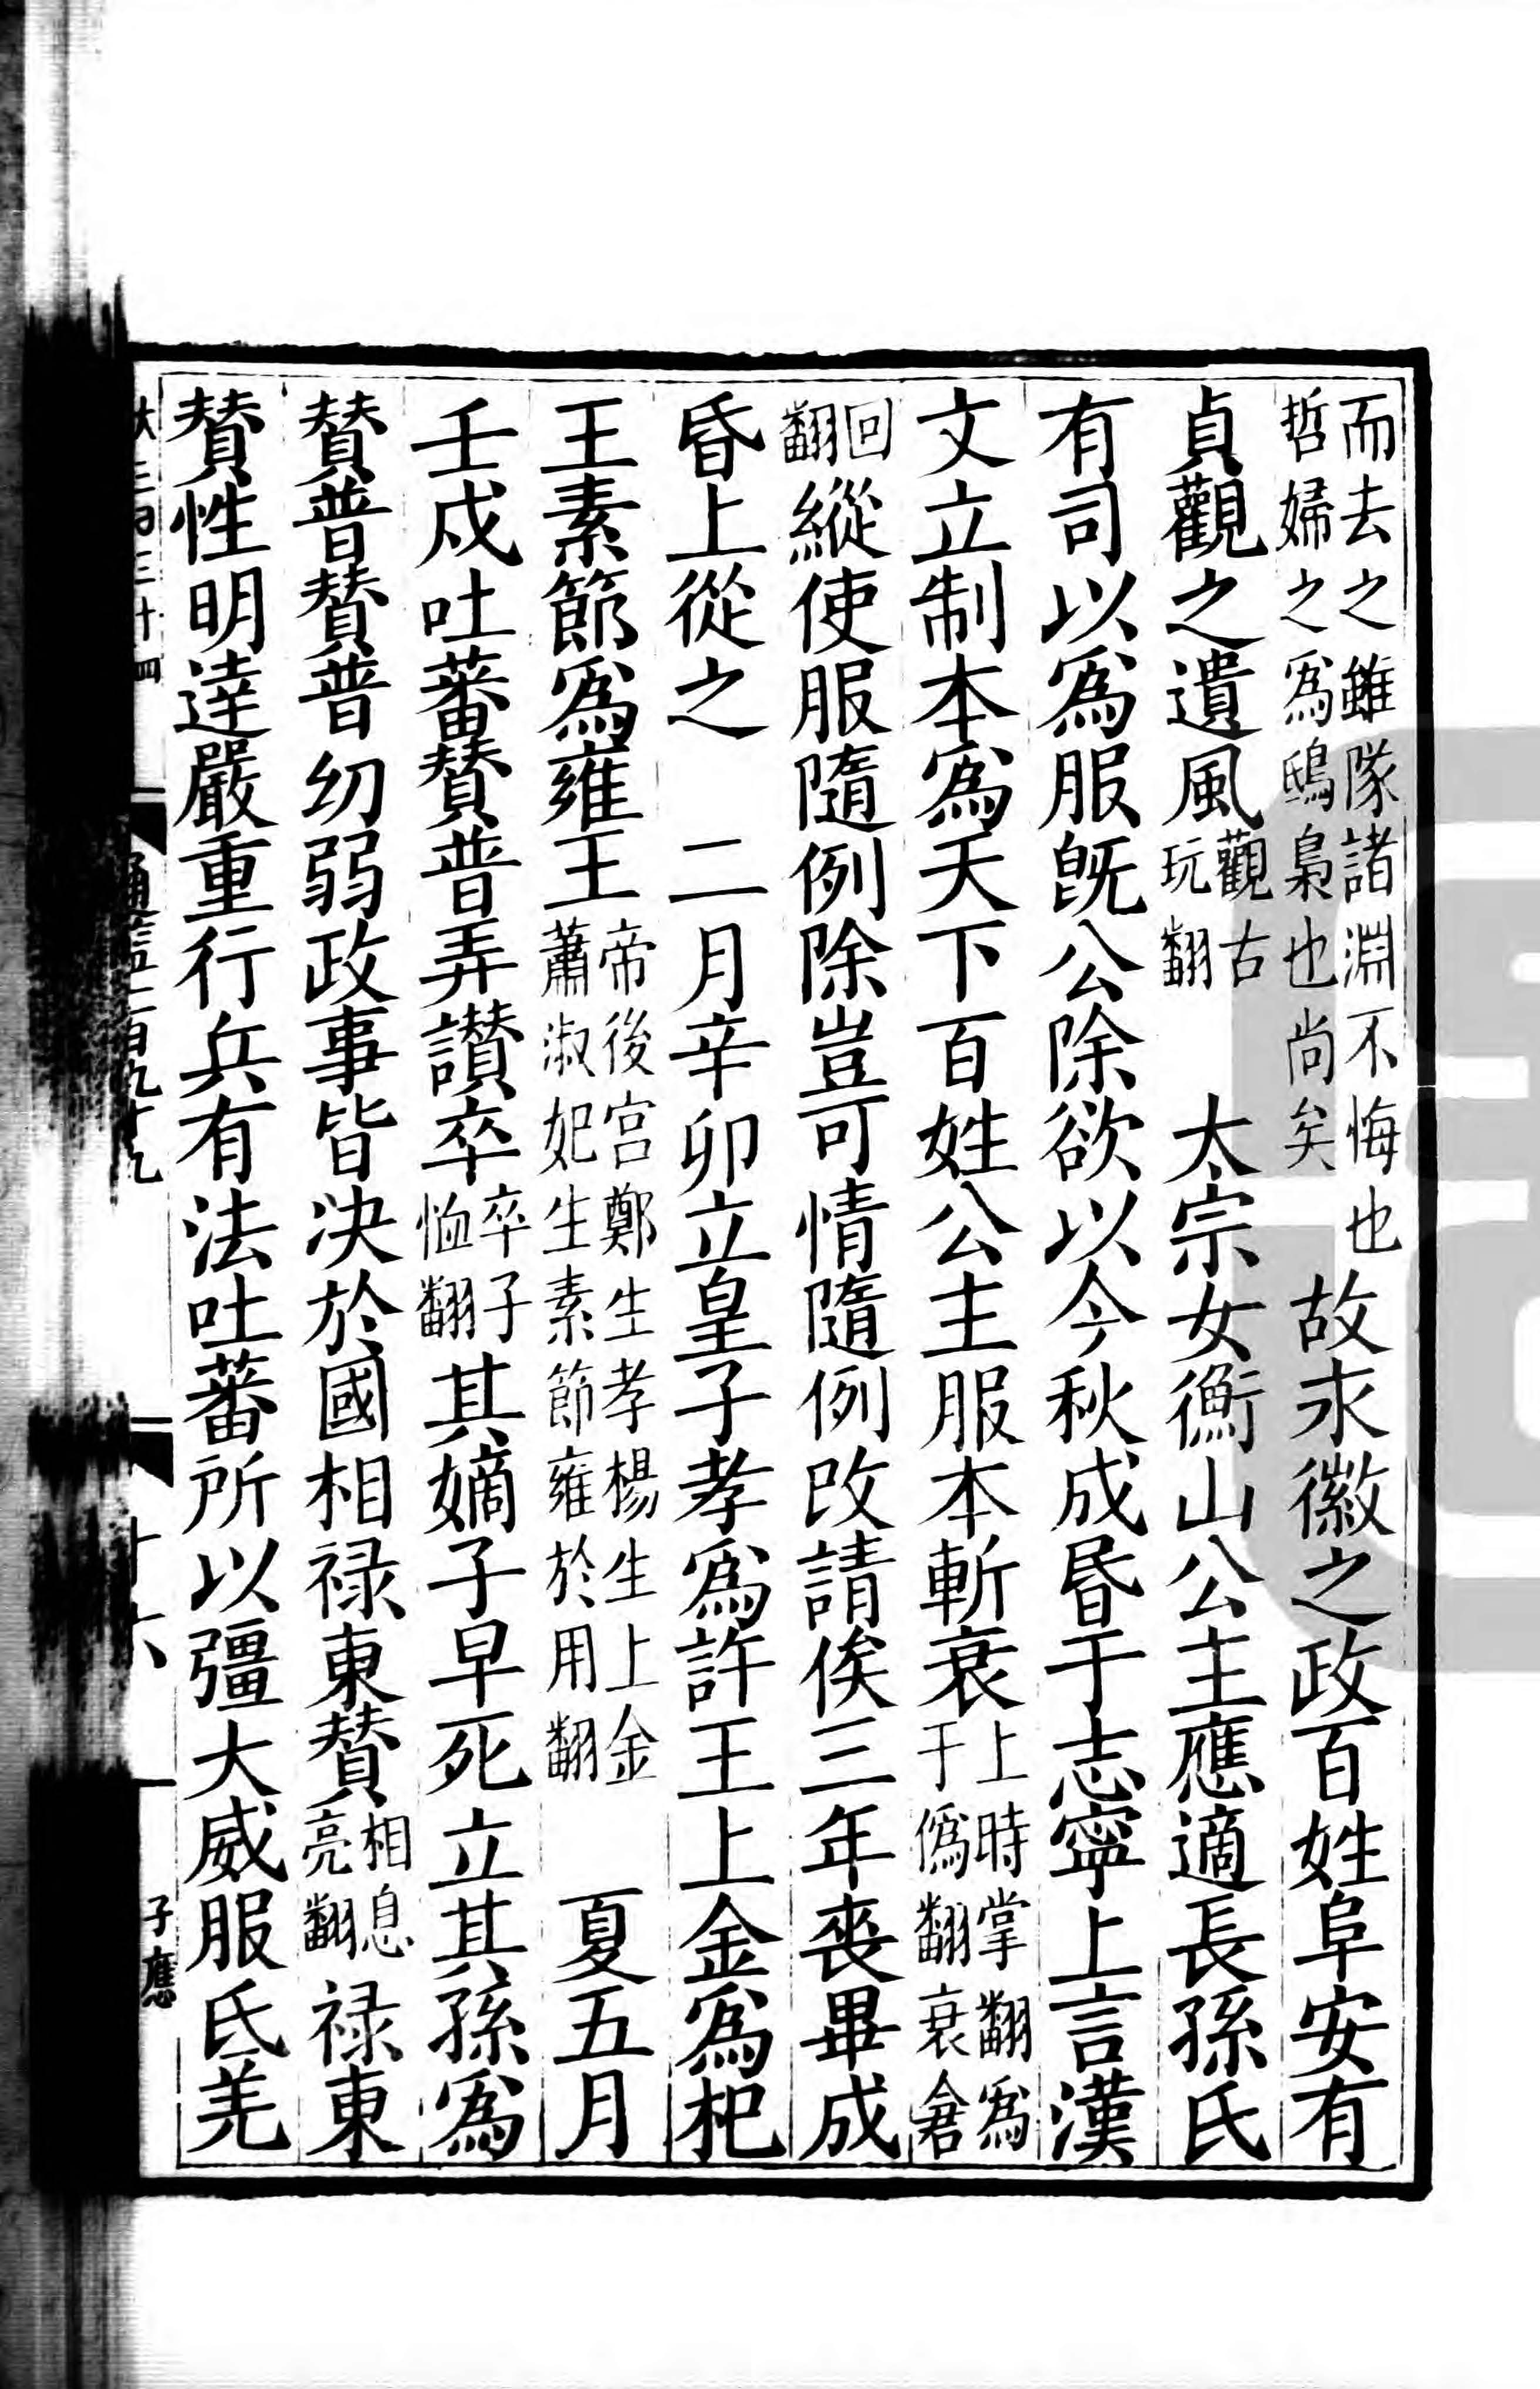 而去之雖隊諸淵不悔也
哲婦之爲鴟梟也尚矣
故永徽之政百姓阜安有
貞觀之遺風
觀古
玩翻
太宗女衡山公主應適長孫氏
有司以爲服旣公除欲以今秋成昏于志寧上言漢
文立制本爲天下百姓公主服本斬衰
上時掌翻爲
于僞翻衰倉
回
翻
縱使服隨例除豈可情隨例改請俟三年喪畢成
昏上從之 二月辛卯立皇子孝爲許王上金爲杞
王素節爲雍王
帝後宮鄭生孝楊生上金
蕭淑妃生素節雍於用翻
夏五月
壬戌吐蕃贊普弄讃卒
卒子
恤翻
其嫡子早死立其孫爲
贊普贊普幼弱政事皆决於國相禄東贊
相息
亮翻
禄東
贊性明達嚴重行兵有法吐蕃所以彊大威服氐羌
十六
子應